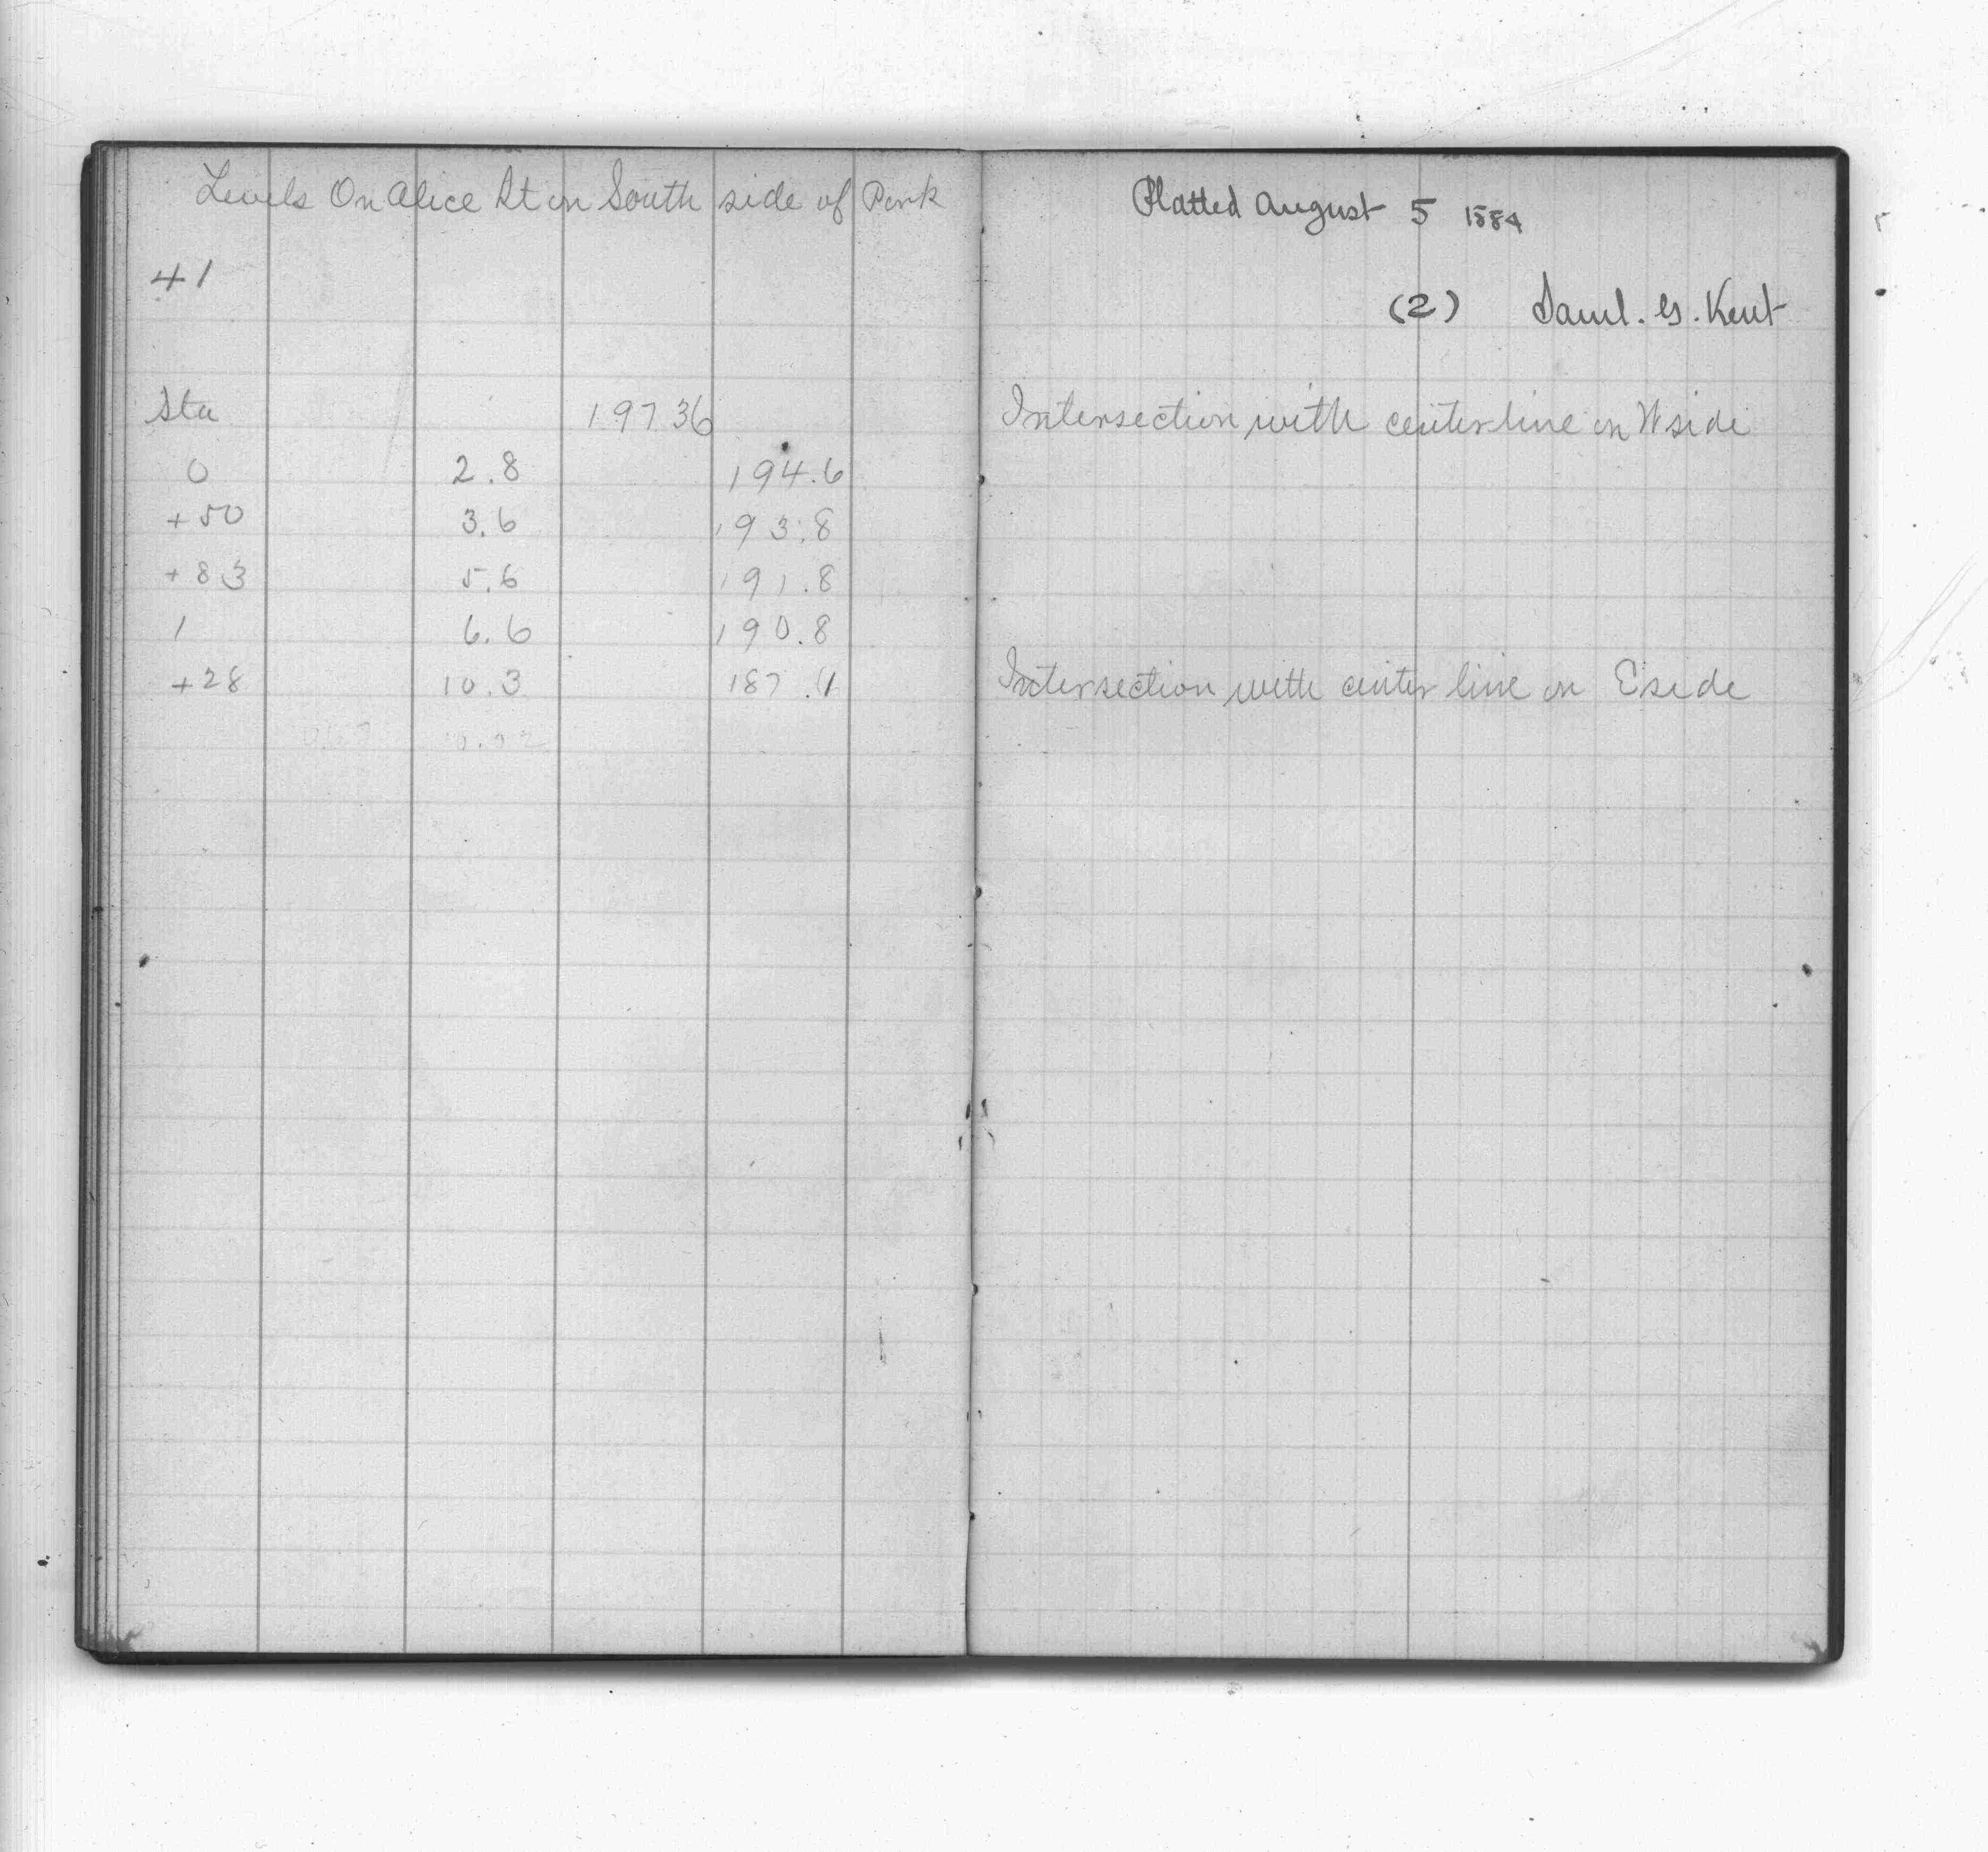 Levels On Alice St on South side of Park
41
Sta 197 36
0 2.8 194.6
+50 3.6 193.8
+83 5.6 191.8
1 6.6 190.8
+28 10.3 187.1
Platted August 5 1884
(2) Saml. G. Kent
Intersection with center line on W side
Intersection with center line on E side